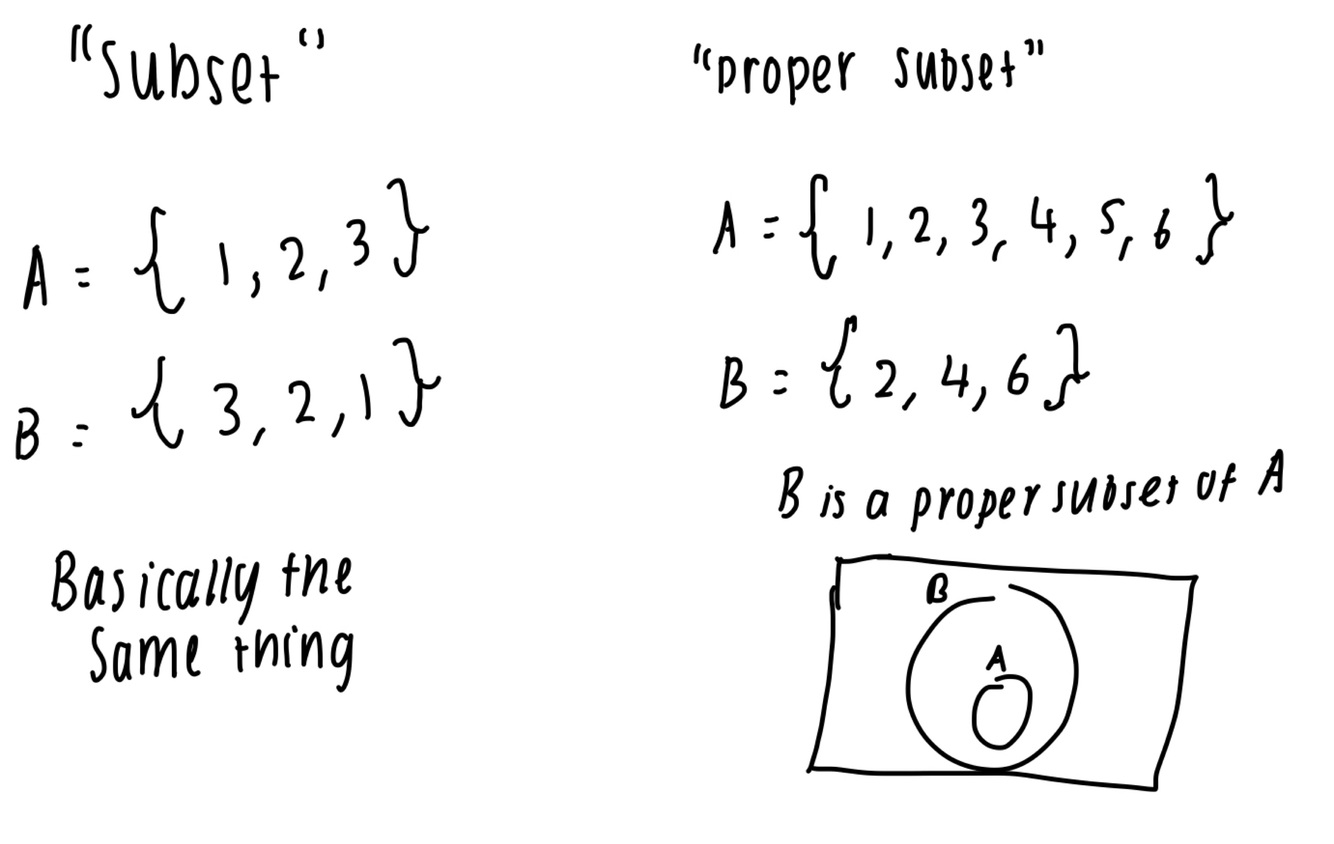 "Subset"
A = { 1, 2, 3 }
B = { 3, 2, 1 }
Basically the
same thing
"proper subset"
A = { 1, 2, 3, 4, 5, 6 }
B = { 2, 4, 6 }
B is a proper subset of A
B
A